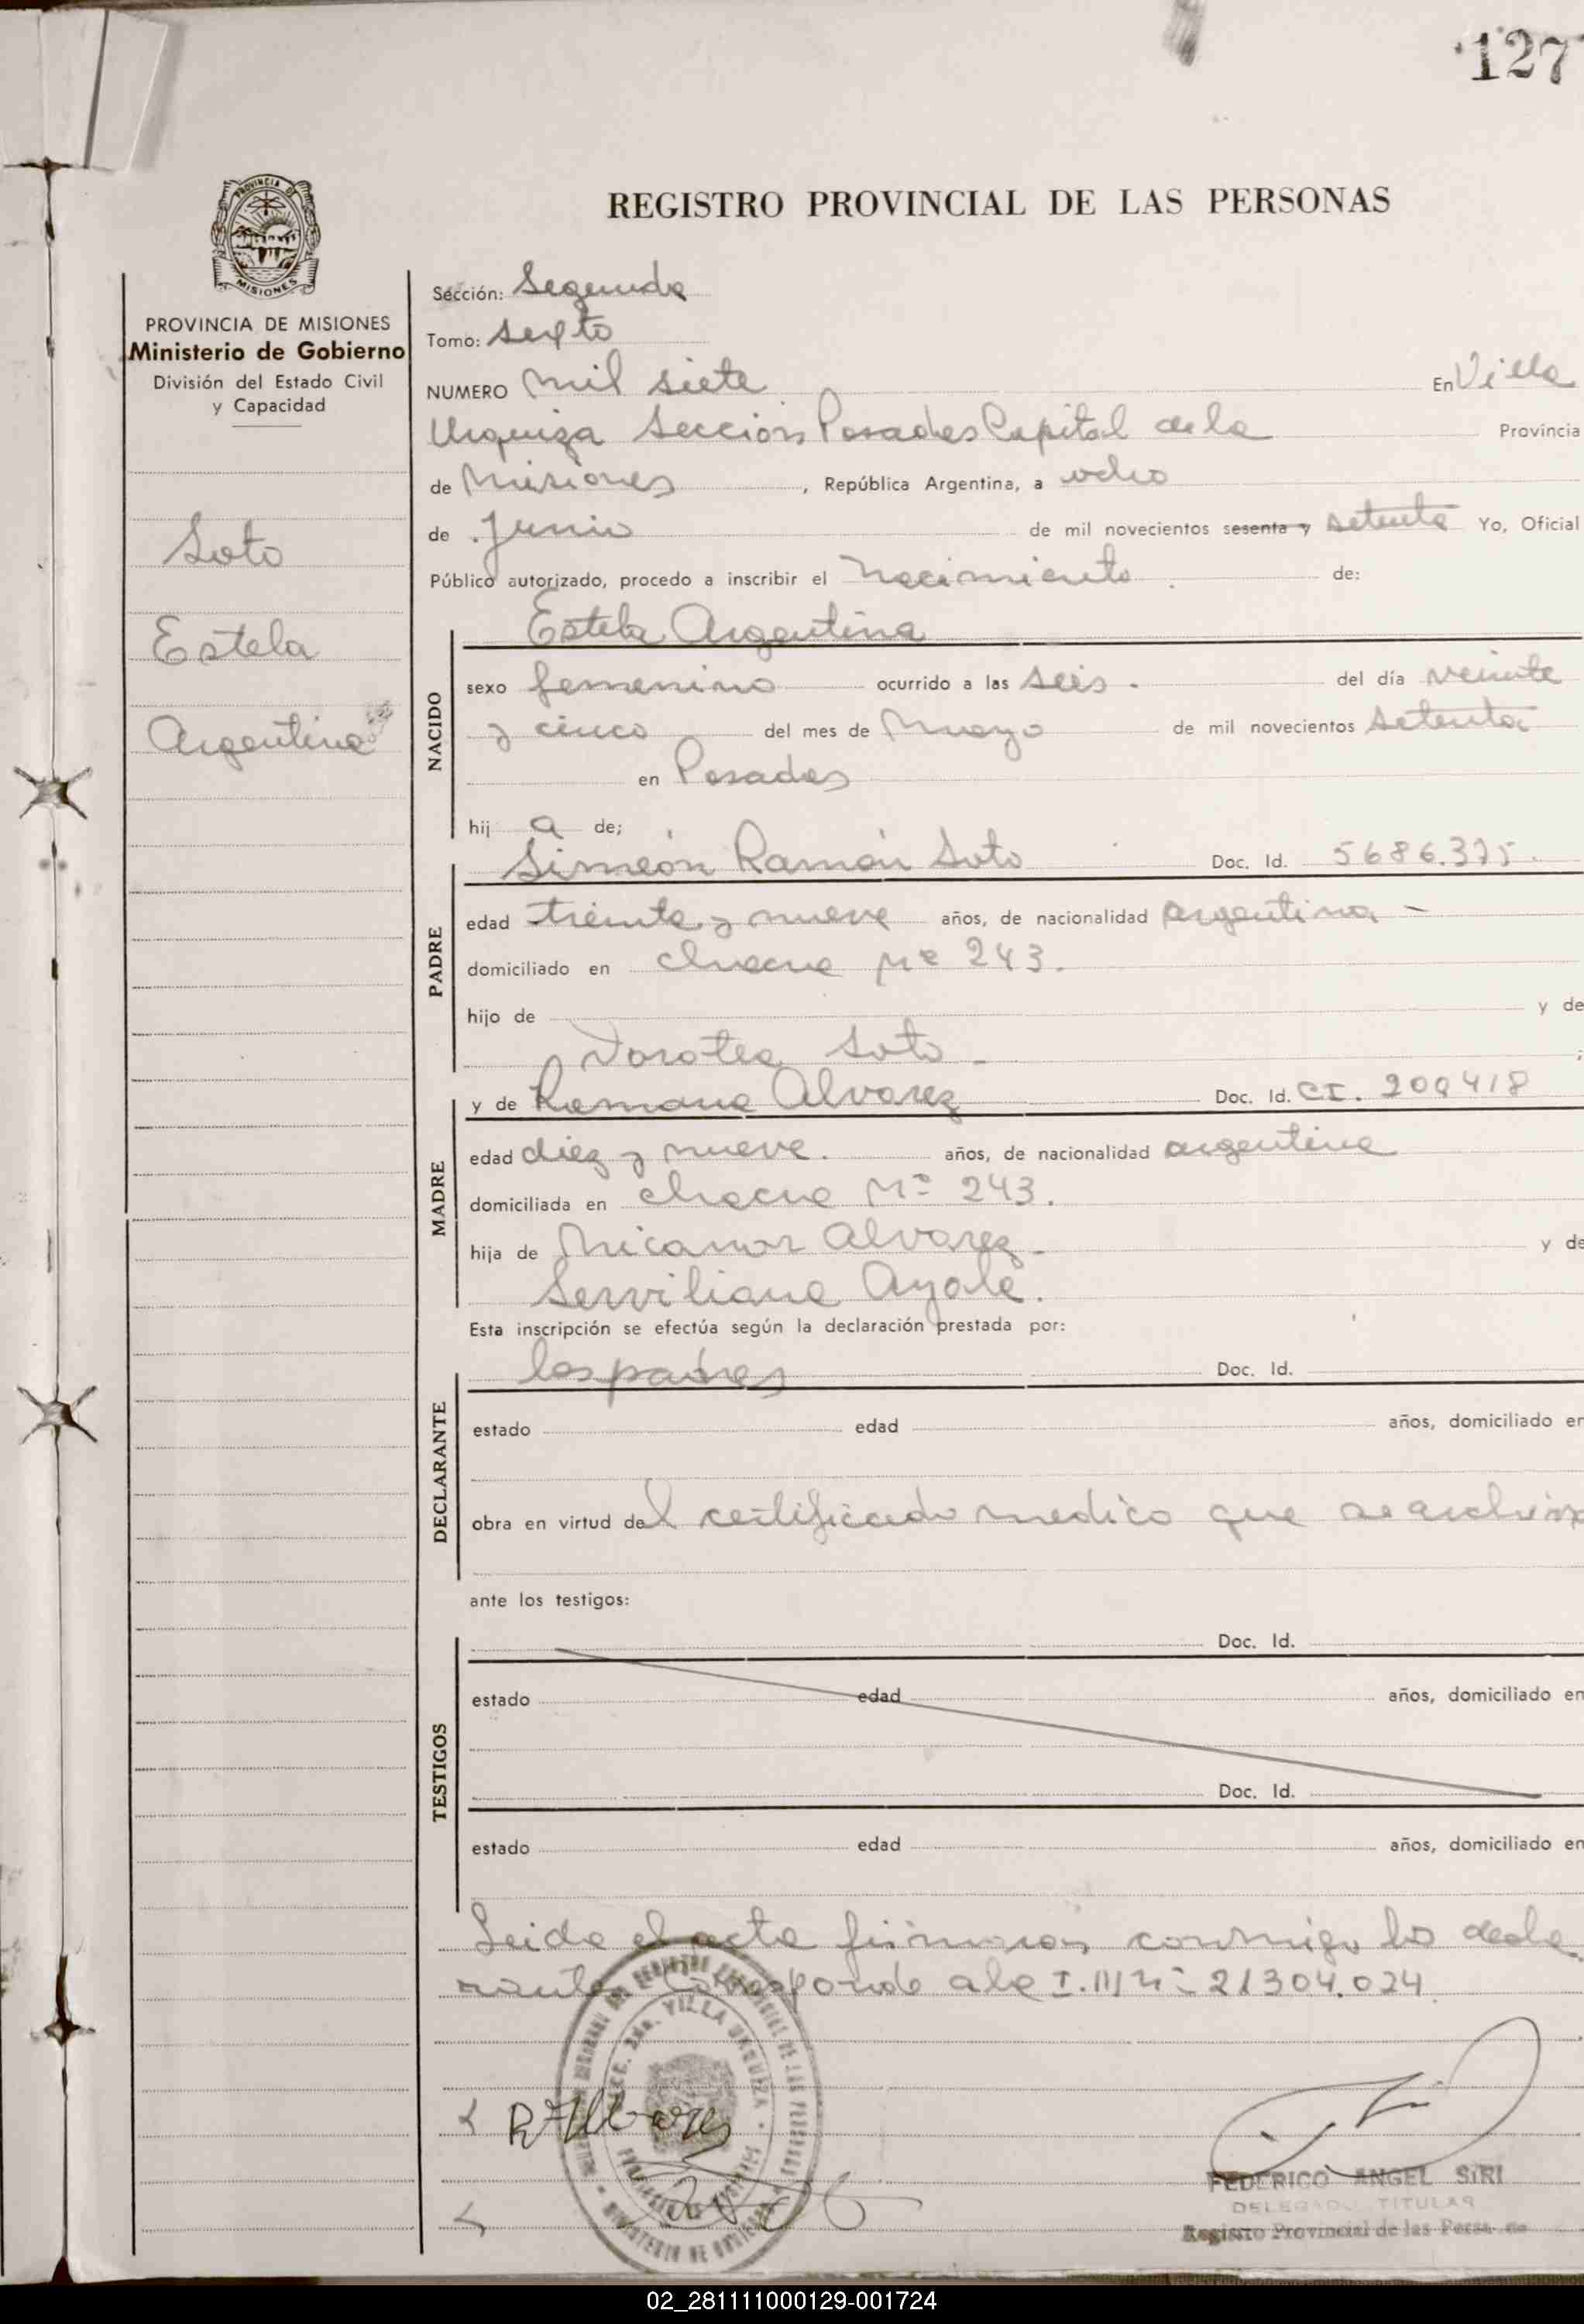 127
REGISTRO PROVINCIAL DE LAS PERSONAS
PROVINCIA DE MISIONES
Ministerio de Gobierno
División del Estado Civil
y Capacidad
Soto
Estela
Argentina
Sección: Segunda
Tomo: sexto
NUMERO mil siete En Villa
Urquiza Sección Posadas Capital de la Provincia
de Misiones, República Argentina, a ocho
de Junio de mil novecientos sesenta y setenta Yo, Oficial
Público autorizado, procedo a inscribir el Nacimiento de:
NACIDO
Estela Argentina
sexo femenino ocurrido a las seis. del día veinte
y cinco del mes de Mayo de mil novecientos setenta
en Posadas
hij a de;
Simeón Ramón Soto Doc. Id. 5686.375.
PADRE
edad treinta y nueve años, de nacionalidad argentina -
domiciliado en chacra Nº 243.
hijo de y de
Dorotea Soto - ;
y de Romana Alvarez Doc. Id. CI. 209418
MADRE
edad diez y nueve. años, de nacionalidad argentina
domiciliada en chacra Nº 243.
hija de Nicanor Alvarez - y de
Serviliana Ayala.
Esta inscripción se efectúa según la declaración prestada por:
los padres Doc. Id.
DECLARANTE
estado edad años, domiciliado en
obra en virtud del certificado medico que se archiva
ante los testigos:
Doc. Id.
TESTIGOS
estado edad años, domiciliado en
Doc. Id.
estado edad años, domiciliado en
Leida el acta firmaron conmigo los decla
rantes Corresponde a la I.M Nº 21304.024
SECC. 2da. VILLA URQUIZA
MINISTERIO DE GOBIERNO
R Albarez
FEDERICO ANGEL SIRI
DELEGADO TITULAR
Registro Provincial de las Personas
02_281111000129-001724